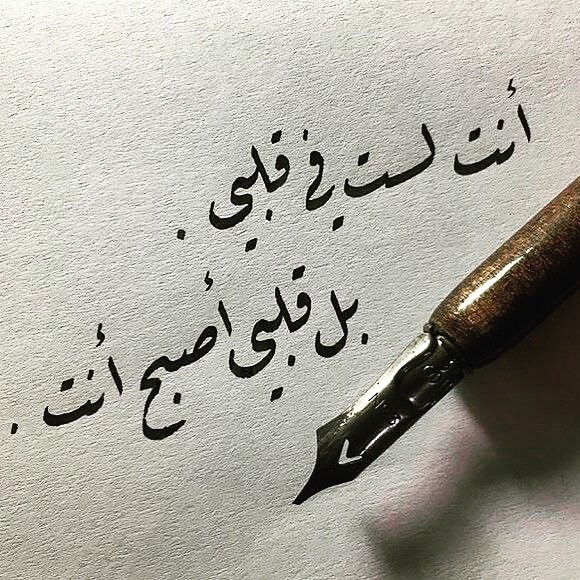 أنت لست في قلبي .
بل قلبي أصبح أنت .